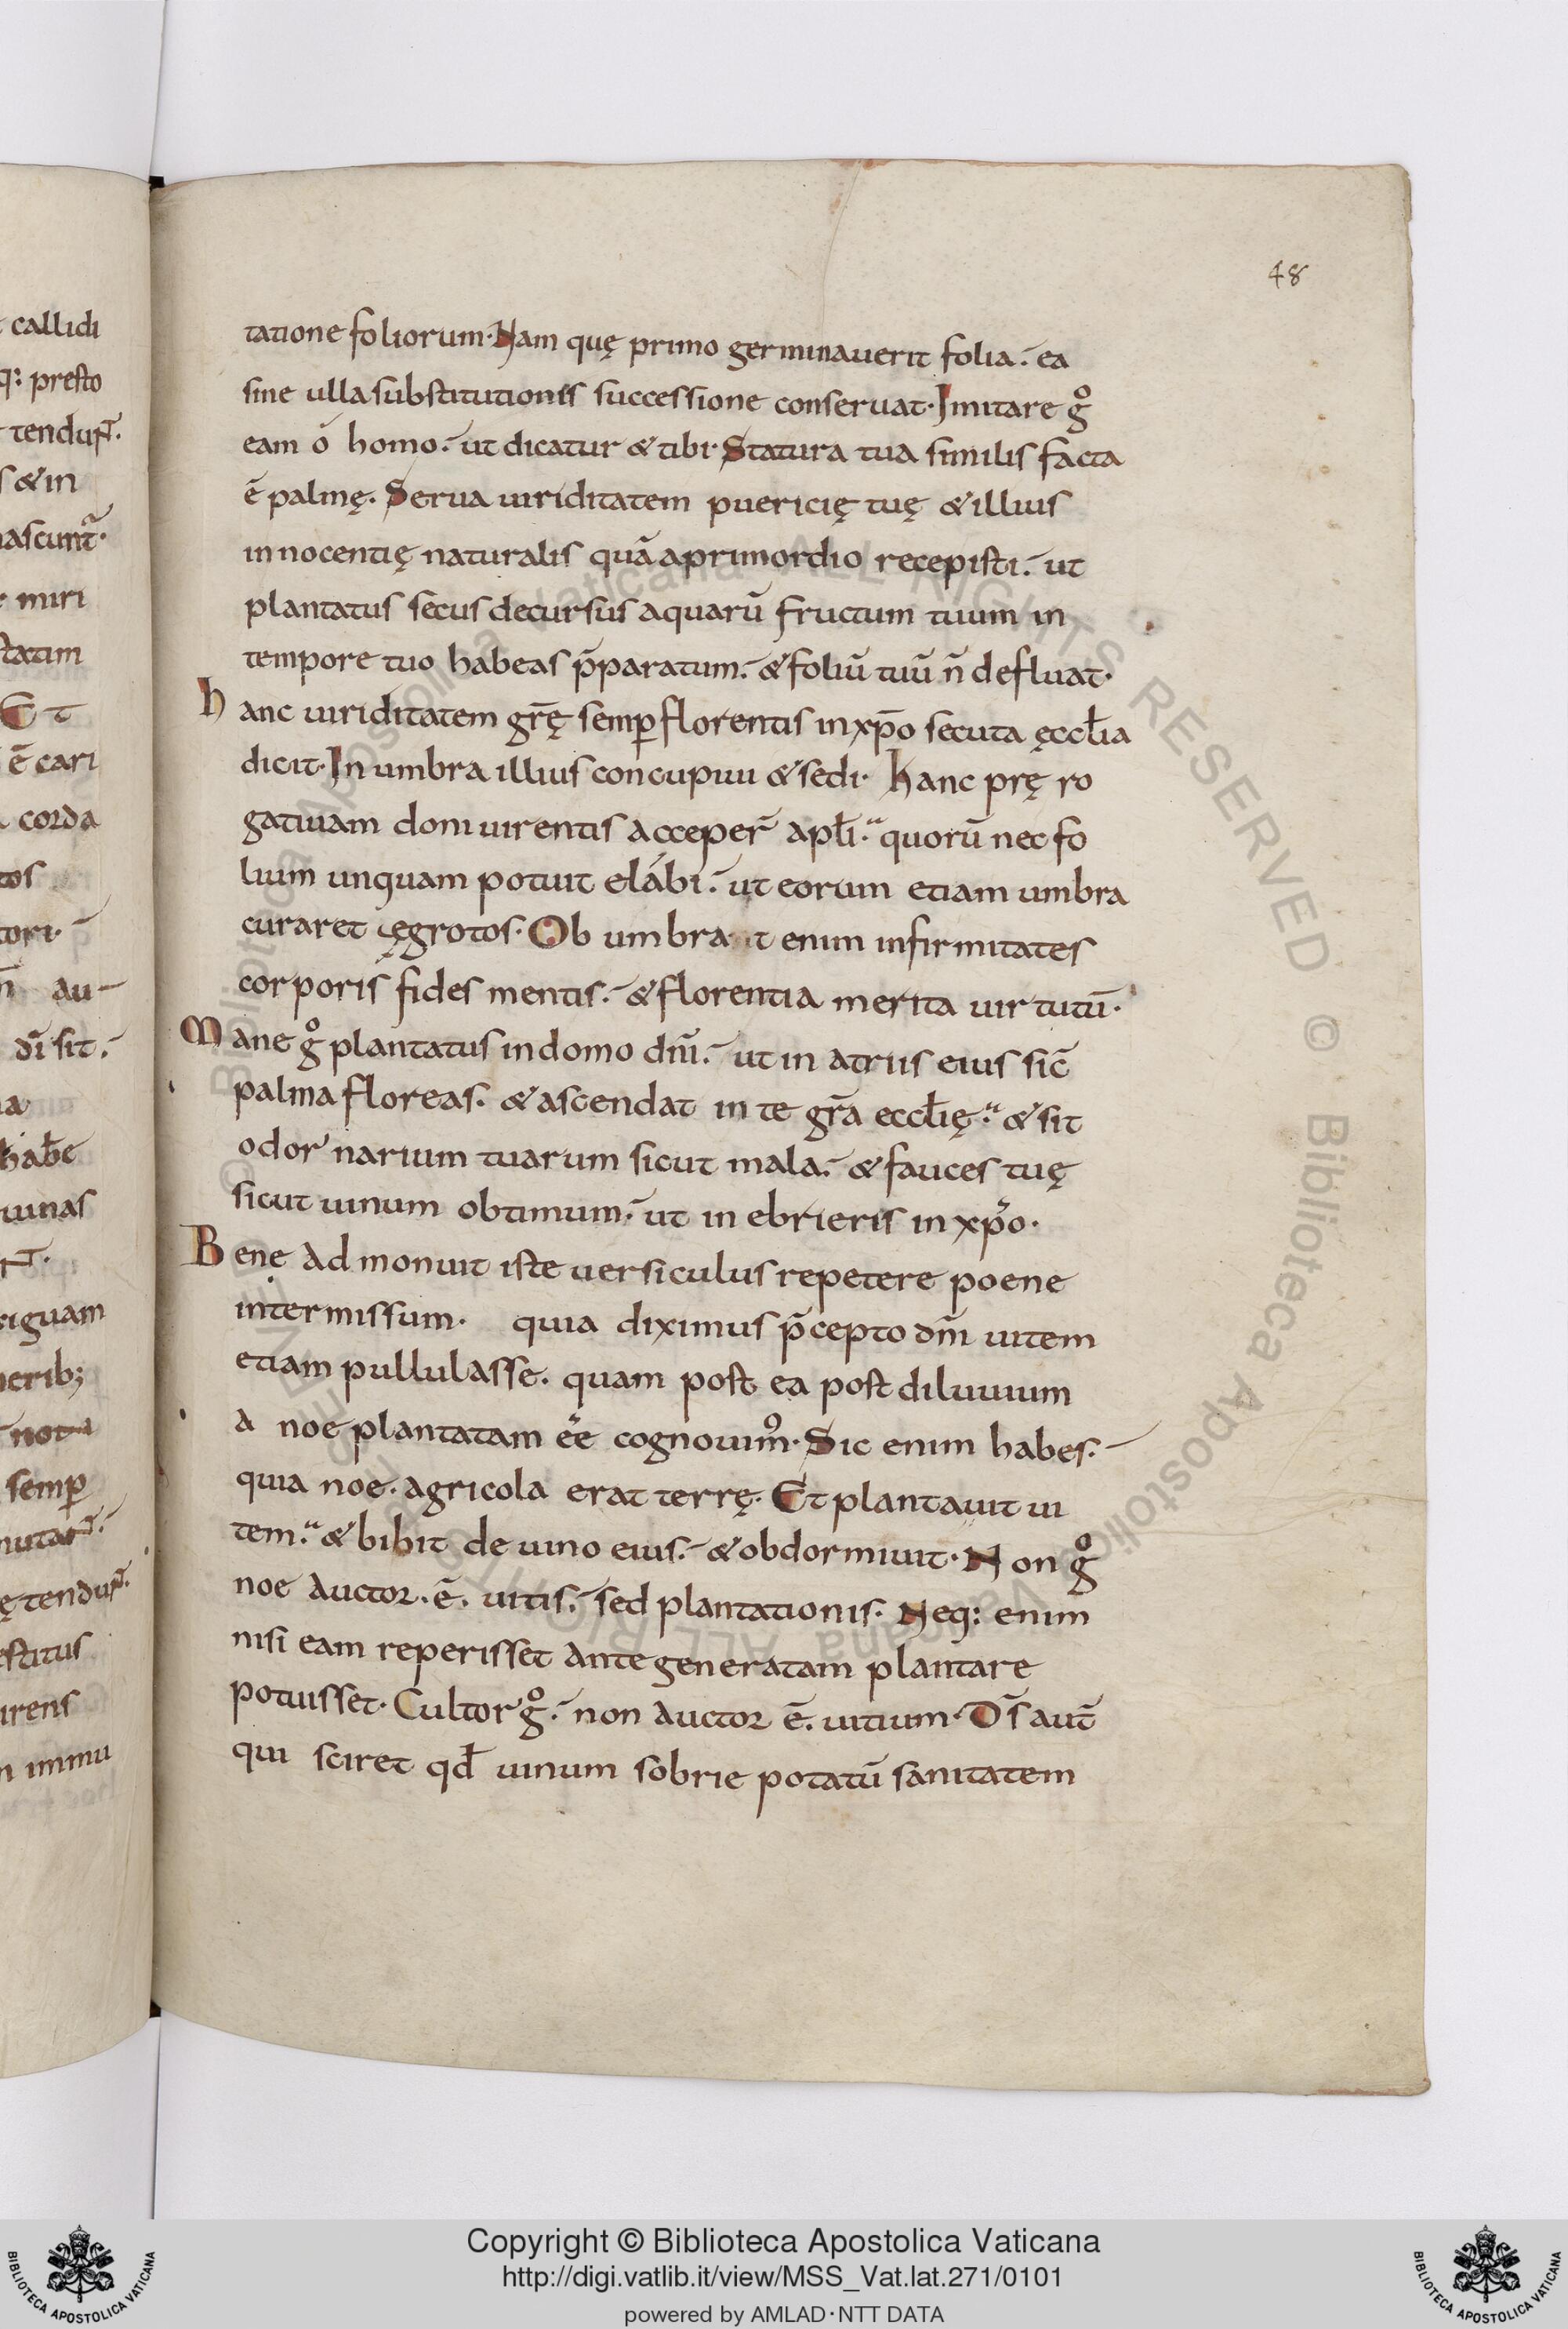 48
callidi
q: presto
tendur̄.
s & in
nascunt᷑.
miri
statim
Et
ē cari
corda
tos
tori.
au
dī sit.
hab̄e
uinas
riguam
erib;
semp̲
mutar̄.
ę tendur̄.
estitus
irens
immu
tatione foliorum. Nam quę primo germinauerit folia. ea
sine ulla substitutionis successione conseruat. Imitare gͦ
eam ó homo. ut dicatur & tibi. Statura tua similis facta
ē palmę. Serua uiriditatem puericię tuę & illius
innocentię naturalis quā aprimordio recepisti. ut
plantatus secus decursus aquarū fructum tuum in
tempore tuo habeas p̄paratum. & foliū tuū n̄ defluat.
hanc uiriditatem gr̄ę semp̲ florentis in xp̄o secuta ęccl̄ia
dicit. In umbra illius concupiui & sedi. hanc prę ro
gatiuam doni uirentis acceper̄ apl̄i. quorū nec fo
lium unquam potuit elábi. ut eorum etiam umbra
curaret ęgrotos. Ob umbra t enim infirmitates
corporis fides mentis. & florentia merita uirtutū.
Mane gͦ plantatus in domo dn̄i. ut in atriis eius sic̄
palma floreas. & ascendat in te gr̄a eccl̄ię. & sit
odor narium tuarum sicut mala. & fauces tuę
sicut uinum obtimum. ut inebrieris in xp̄o.
Bene admonuit iste uersiculus repetere poene
intermissum. quia diximus p̄cepto dn̄i uitem
etiam pullulasse. quam post ea post diluuium
a noe plantatam ēe cognouim᷒. Sic enim habes.
quia noe. agricola erat terrę. Et plantauit ui
tem. & bibit de uino eius. & obdormiuit. Non gͦ
noe auctor. ē. uitis. sed plantationis. Neq: enim
nisi eam reperisset ante generatam plantare
potuisset. Cultor gͦ. non auctor ē. uitium. Ds̄ aut̄
qui sciret qd̄ uinum sobrie potatū sanitatem
© Biblioteca Apostolica Vaticana ALL RIGHTS RESERVED
Copyright © Biblioteca Apostolica Vaticana
http://digi.vatlib.it/view/MSS_Vat.lat.271/0101
powered by AMLAD·NTT DATA
BIBLIOTECA APOSTOLICA VATICANA
BIBLIOTECA APOSTOLICA VATICANA